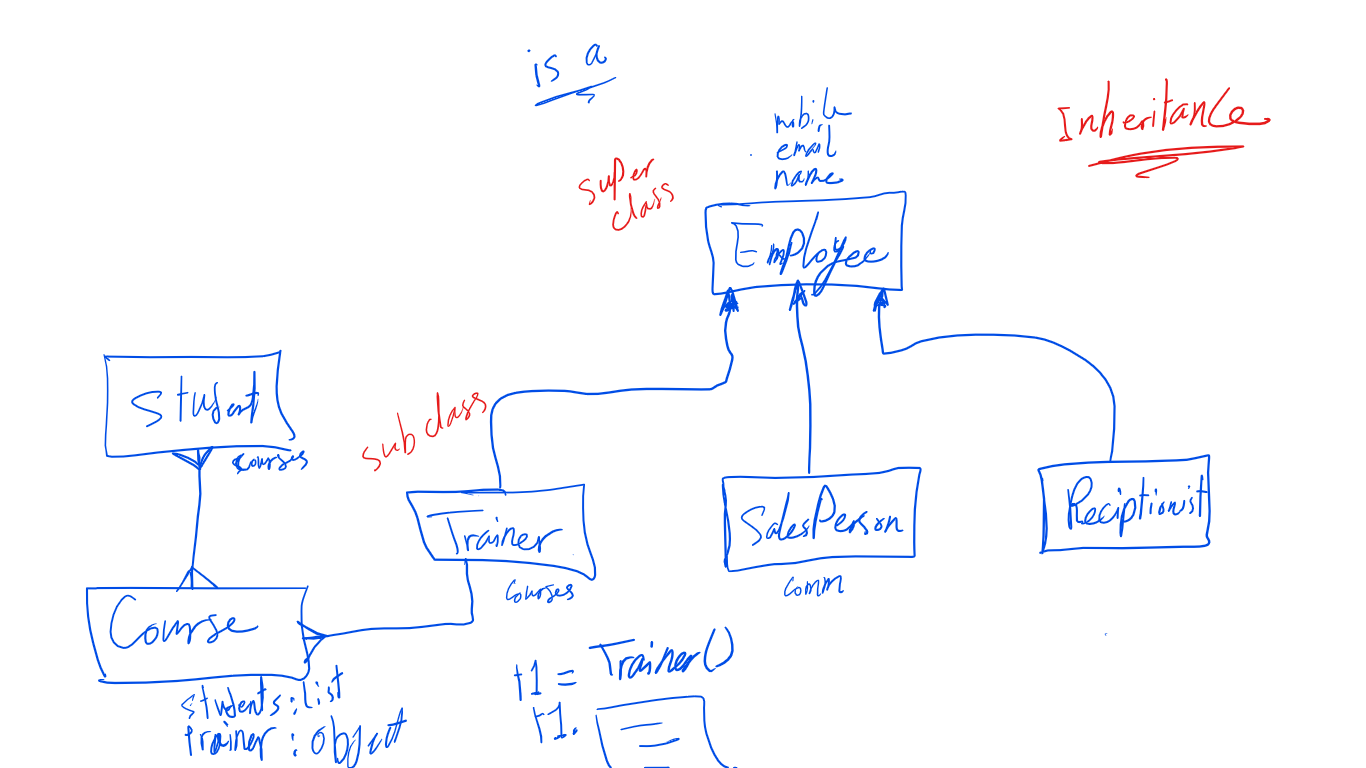 is a
Inheritance
mobile
email
name
super
class
Employee
Student
courses
subclass
Trainer
courses
SalesPerson
comm
Reciptionist
Course
students : list
trainer : object
t1 = Trainer()
t1.